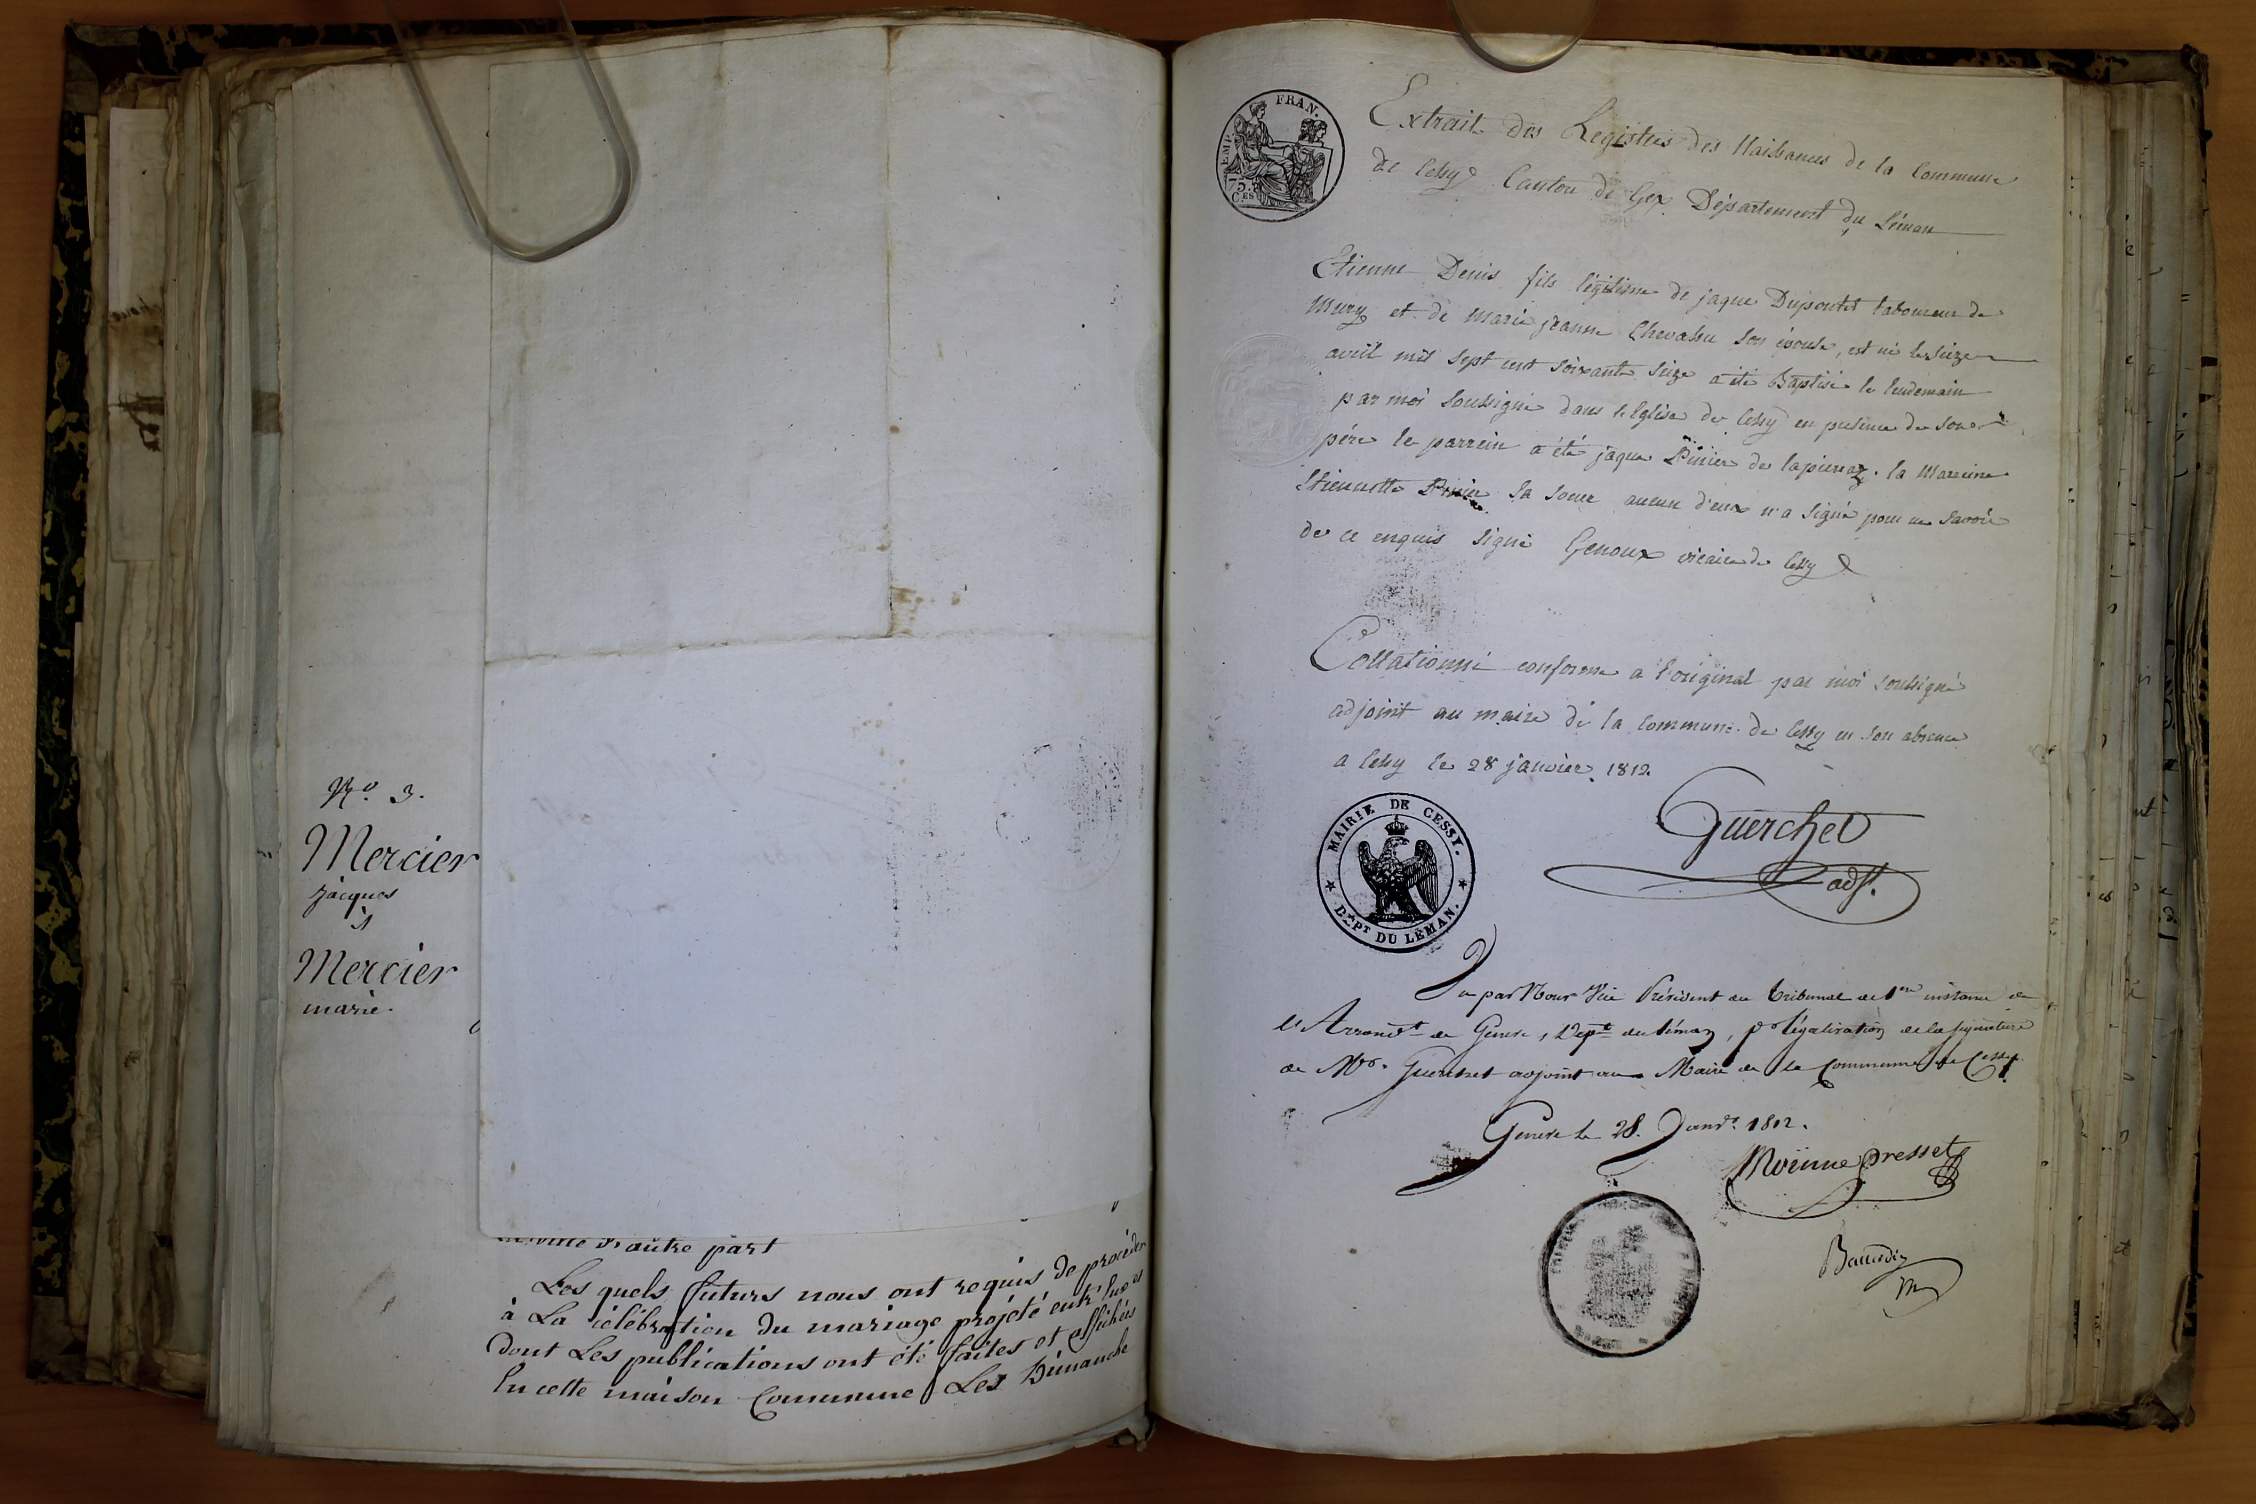 N.o 3.
Mercier
jacques
à
Mercier
marie.
d'autre part
Les quels futurs nous ont requis de procéder
à La célébration du mariage projeté entr'Eux et
dont Les publications ont été faites et affichées
En cette maison Commune Les Dimanche
EMP. FRAN.
75. C.ES
Extrait des Registres des Naissances de la Commune
de Cessy Canton de Gex Département du Léman
Etienne Denis fils légitime de jaque Dupontet laboureur de
Mury et de marie jeanne Chevassu son épouse, est né le seize
avril mil sept cent soixante seize a été Baptisé le lendemain
par moi soussigné dans l'Eglise de Cessy en présence de son
père le parrein a été jaque de lapierraz. la Marreine
Etiennette sa soeur aucun d'eux n'a signé pour ne savoir
de ce enquis signé Genoux vicaire de Cessy
Collationné conforme a l'original par moi soussigné
adjoint au maire de la commune de Cessy en son absence
a Cessy le 28 janvier 1812.
Guerchet
adj.t
MAIRIE DE CESSY.
D.EPT DU LÉMAN.
Vu par Nous Vice Président au tribunal de 1.ere instance de
l'Arrond.t de Geneve, Dep.t du Léman, p.r légalisation de la signature
de M.r Guerchet adjoint au Maire de la Commune de Cessy.
Geneve le 28. Janv.r 1812.
Moënne